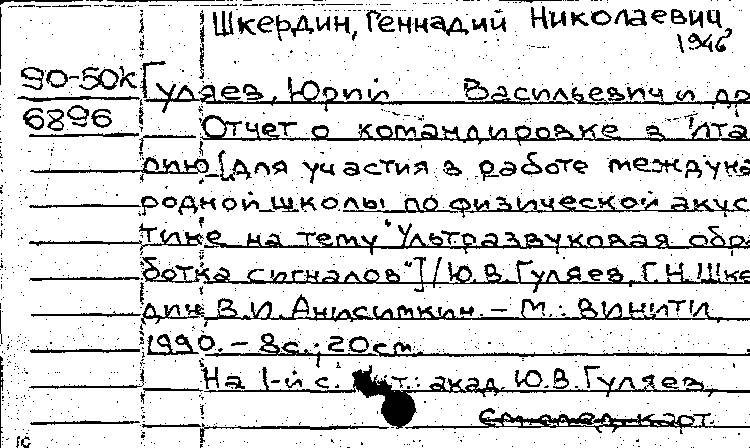 Шкердин, Геннадий Николаевич,
1946
90-50к Гуляев, Юрий Васильевич и др
6896 Отчет о командировке в Ита
лию [для участия в работе междуна
родной школы по физической акус
тике на тему "Ультразвуковая обра
ботка сигналов"] / Ю.В. Гуляев, Г.Н. Шке
дин, В.И. Анисимкин. – М.: ВИНИТИ,
1990. – 8с.; 20см.
На 1-й с. : акад. Ю.В. Гуляев,
карт.
10